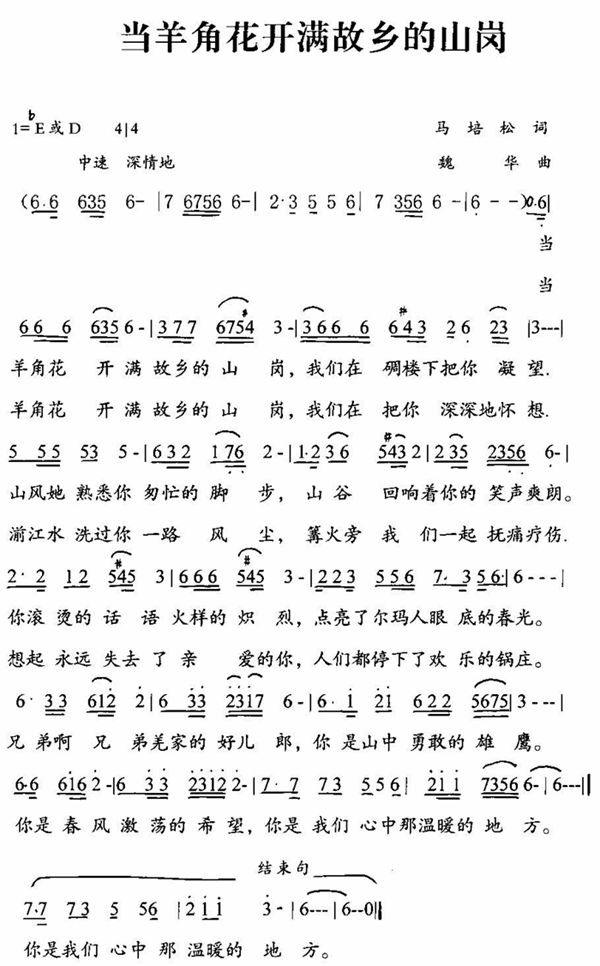 当羊角花开满故乡的山岗
1=♭E或D 4|4 马 培 松 词
中速 深情地 魏 华 曲
(6·6 635 6- |7 6756 6-| 2·3 5 5 6| 7 356 6 -|6 - -)0·6|
当
当
66 6 635 6-|377 6754 3-|366 6 643 26 23 |3---|
羊角花 开 满 故乡的 山 岗，我们在 碉楼下把你 凝 望.
羊角花 开 满 故乡的 山 岗，我们在 把你 深深地怀 想.
5 55 53 5-|632 176 2-|1·236 5432|235 2356 6-|
山风她 熟悉你 匆忙的 脚 步，山 谷 回响着你的 笑声爽朗。
湔江水 洗过你 一路 风 尘，篝火旁 我 们一起 抚痛疗伤.
2·2 12 545 3|666 545 3-|2223 556 7·356·|6---|
你滚 烫的 话 语 火样的 炽 烈，点亮了尔玛人眼 底的春光。
想起 永远 失去 了 亲 爱的你，人们都停下了欢 乐的锅庄。
6· 33 612 2|6 33 2317 6-|6·1 21 622 5675|3---|
兄 弟啊 兄 弟羌家的 好儿 郎，你 是山中 勇敢的 雄 鹰。
6·6 6162-|6 33 23122-|7·7 73 556| 211 7356 6-|6---||
你是 春 风 激 荡的 希 望，你是 我们 心中那温暖的 地 方。
结束句
7·7 73 5 56 |211 3·-|6---|6--0||
你是我们 心中 那 温暖的 地 方。